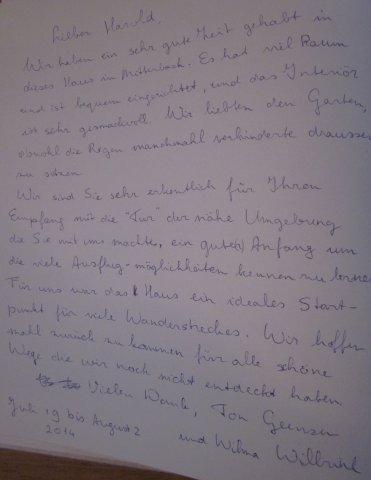 Lieber Harold,
Wir haben ein sehr gute Zeit gehabt in
dieses Haus in Mitterbach. Es hat viel Raum
und ist bequem eingerichtet, und das Interiör
ist sehr gesmackvoll. Wir liebten den Garten,
obwohl die Regen manchmahl verhinderte draussen
zu sitzen.
Wir sind Sie sehr erkentlich für Ihren
Empfang mit die "Tur" der nähe Umgebung
die Sie mit uns machte, ein gute(r) Anfang um
die viele Ausflug-möglichkeiten kennen zu lernen
Für uns war das Haus ein ideales Start-
punkt für viele Wanderstreches. Wir hoffen
mahl zurück zu kommen für alle schöne
Wege die wir noch nicht entdeckt haben
Vielen Dank, Ton
und Wilma
Juli 19 bis August 2
2014